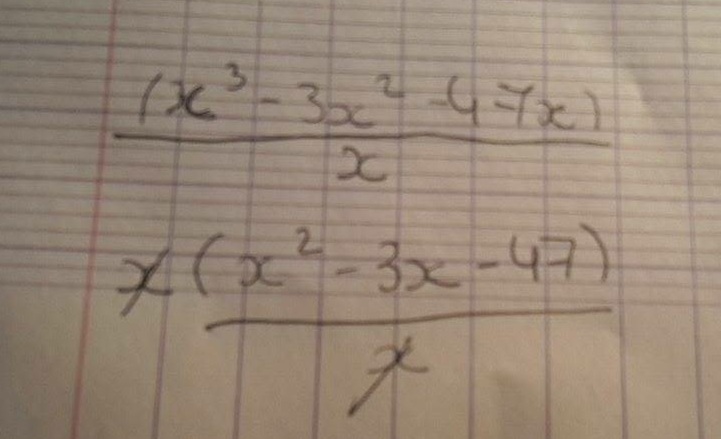 (x³ - 3x² - 47x)
x
x(x² - 3x - 47)
x